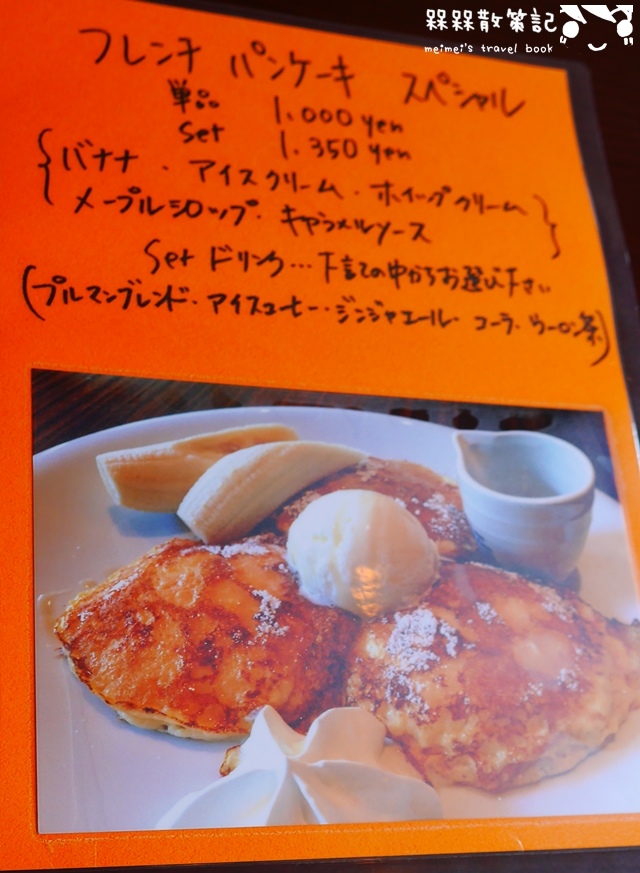 槑槑散策記
meimei's travel book
フレンチ パンケーキ スペシャル
単品 1.000 yen
set 1.350 yen
{バナナ・アイスクリーム・ホイップクリーム
メープルシロップ・キャラメルソース}
set ドリンク…下記の中からお選び下さい
(プルマンブレンド・アイスコーヒー・ジンジャエール・コーラ・ウーロン茶)